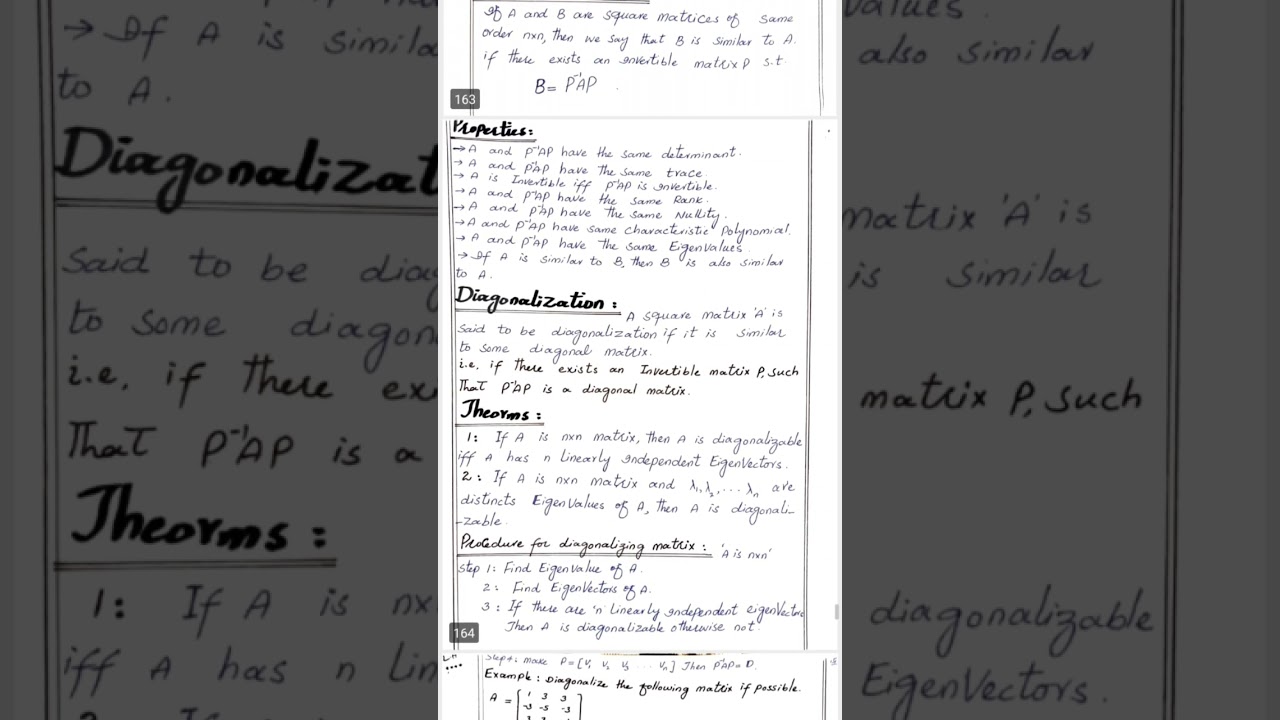 If A and B are square matrices of same
order nxn, then we say that B is similar to A.
if there exists an invertible matrix P s.t.
B = P⁻¹AP
163
Properties:
→ A and P⁻¹AP have the same determinant.
→ A and P⁻¹AP have the same trace.
→ A is Invertible iff P⁻¹AP is invertible.
→ A and P⁻¹AP have the same Rank.
→ A and P⁻¹AP have the same Nullity.
→ A and P⁻¹AP have same characteristic Polynomial.
→ A and P⁻¹AP have the same Eigenvalues.
→ If A is similar to B, then B is also similar
to A.
Diagonalization :
A square matrix 'A' is
said to be diagonalization if it is similar
to some diagonal matrix.
i.e, if there exists an Invertible matrix P, such
That P⁻¹AP is a diagonal matrix.
Theorms :
1: If A is nxn matrix, then A is diagonalizable
iff A has n linearly independent EigenVectors.
2: If A is nxn matrix and λ₁, λ₂, ... λₙ are
distincts EigenValues of A, then A is diagonali-
-zable.
Procedure for diagonalizing matrix : 'A is nxn'
step 1: Find EigenValue of A.
2: Find EigenVectors of A.
3: If there are 'n' linearly independent eigenVectors
Then A is diagonalizable otherwise not.
164
Step4: make P = [V₁ V₂ V₃ ... Vₙ] Then P⁻¹AP = D.
Example : Diagonalize the following matrix if possible.
A = [ 1 3 3
-3 -5 -3